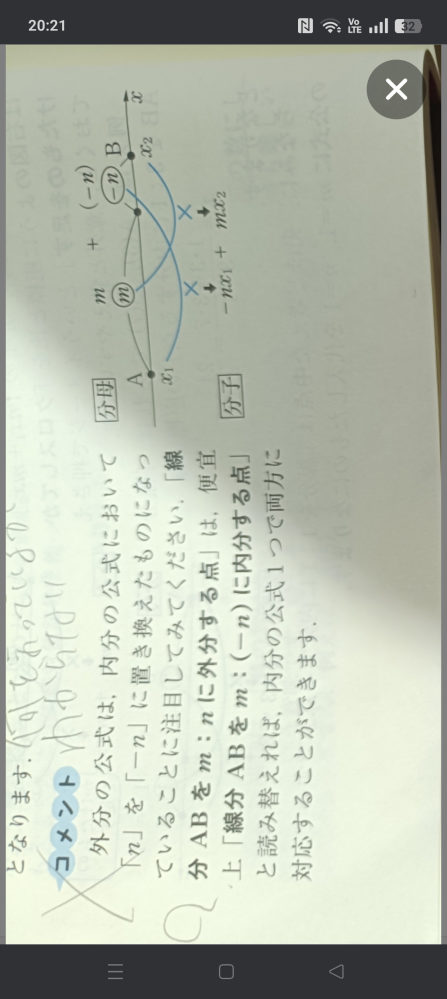 20:21
Vo
LTE
32
となります.
コメント
わからない
外分の公式は,内分の公式において
「n」を「-n」に置き換えたものになっ
ていることに注目してみてください.「線
分ABをm:nに外分する点」は,便宜
上「線分ABをm:(-n)に内分する点」
と読み替えれば,内分の公式1つで両方に
対応することができます.
分母
m + (-n)
m
-n
A
B
x
x₁
x₂
× ×
分子
-nx₁ + mx₂